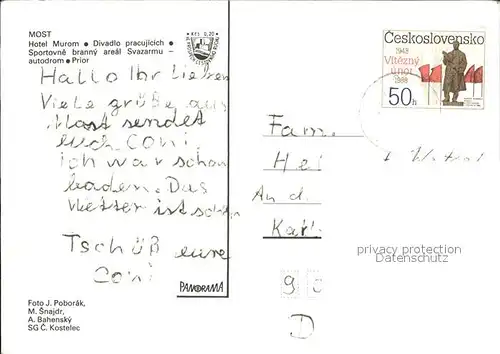 MOST
Hotel Murom ● Divadlo pracujících ●
Sportovně branný areál Svazarmu –
autodrom ● Prior
KČS 0,20
Hallo Ihr Lieben
Viele grüße aus
Most sendet
euch CONI.
ich war schon
baden. Das
Wetter ist
Tschüß eure
Coni
Foto J. Poborák,
M. Šnajdr,
A. Bahenský
SG Č. Kostelec
PANORAMA
Československo
1948
Vítězný
únor
1988
50h
Fam.
Hei
An d.
Karl
privacy protection
Oldthing.com
9
D